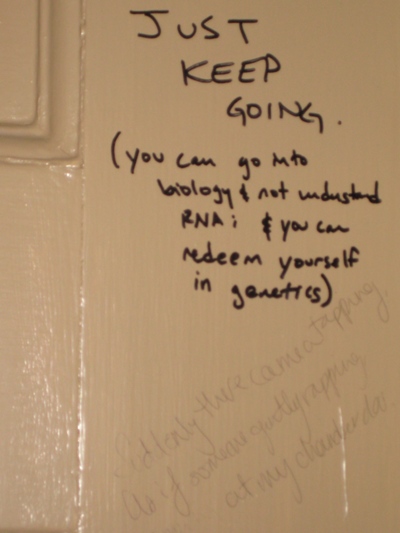 JUST
KEEP
GOING.
(you can go into
biology & not understand
RNAi & you can
redeem yourself
in genetics)
Suddenly there came a tapping,
As if someone gently rapping
at my chamber door.